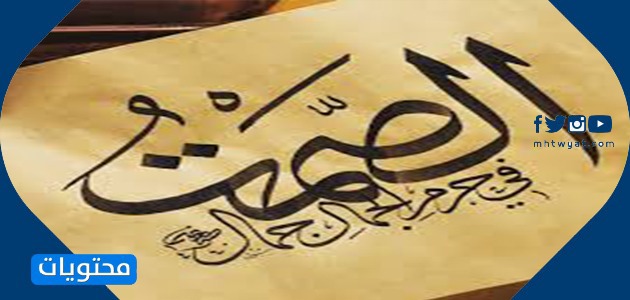 الصَّمْتُ
في حرم الجمال جمال
mhtwyat.com
محتويات